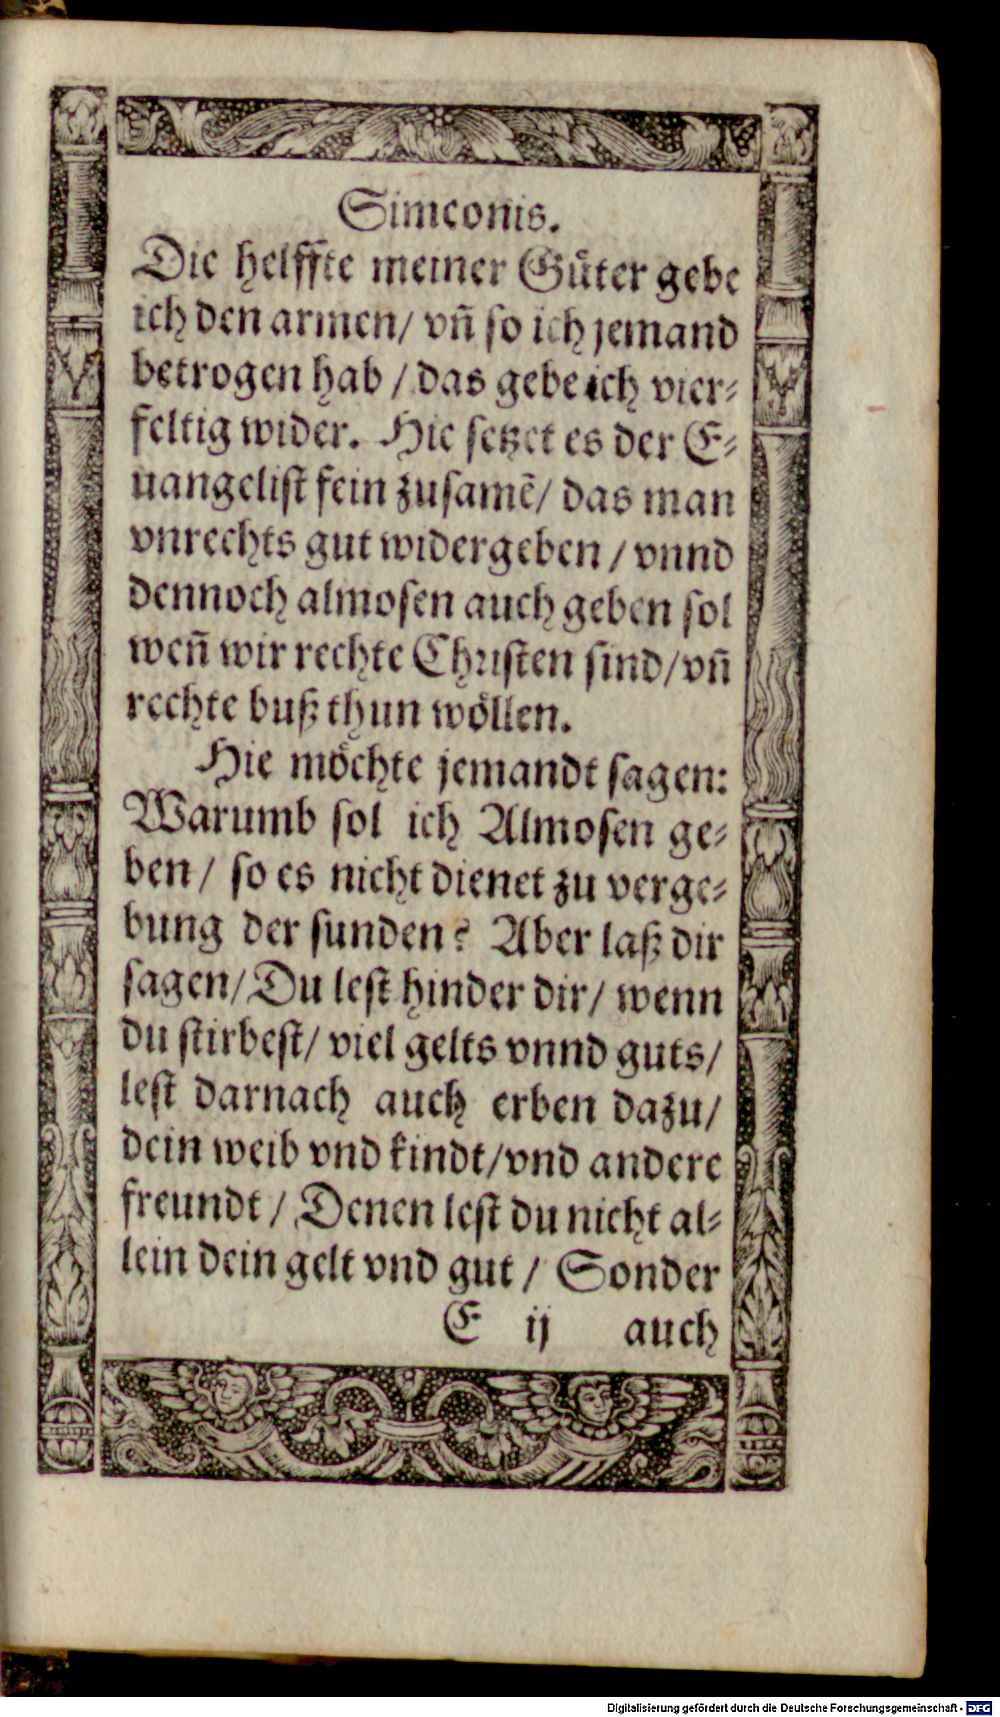 Simeonis.
Die helffte meiner Gůter gebe
ich den armen/ vn̄ so ich jemand
betrogen hab / das gebe ich vier⸗
feltig wider. Hie setzet es der E⸗
uangelist fein zusamē/ das man
vnrechts gut widergeben / vnnd
dennoch almosen auch geben sol
weñ wir rechte Christen sind/ vñ
rechte buß thun woͤllen.
Hie moͤchte jemandt sagen:
Warumb sol ich Almosen ge⸗
ben / so es nicht dienet zu verge⸗
bung der sunden? Aber laß dir
sagen/ Du lest hinder dir/ wenn
du stirbest/ viel gelts vnnd guts/
lest darnach auch erben dazu/
dein weib vnd kindt/ vnd andere
freundt / Denen lest du nicht al⸗
lein dein gelt vnd gut / Sonder
E ij auch
Digitalisierung gefördert durch die Deutsche Forschungsgemeinschaft - DFG